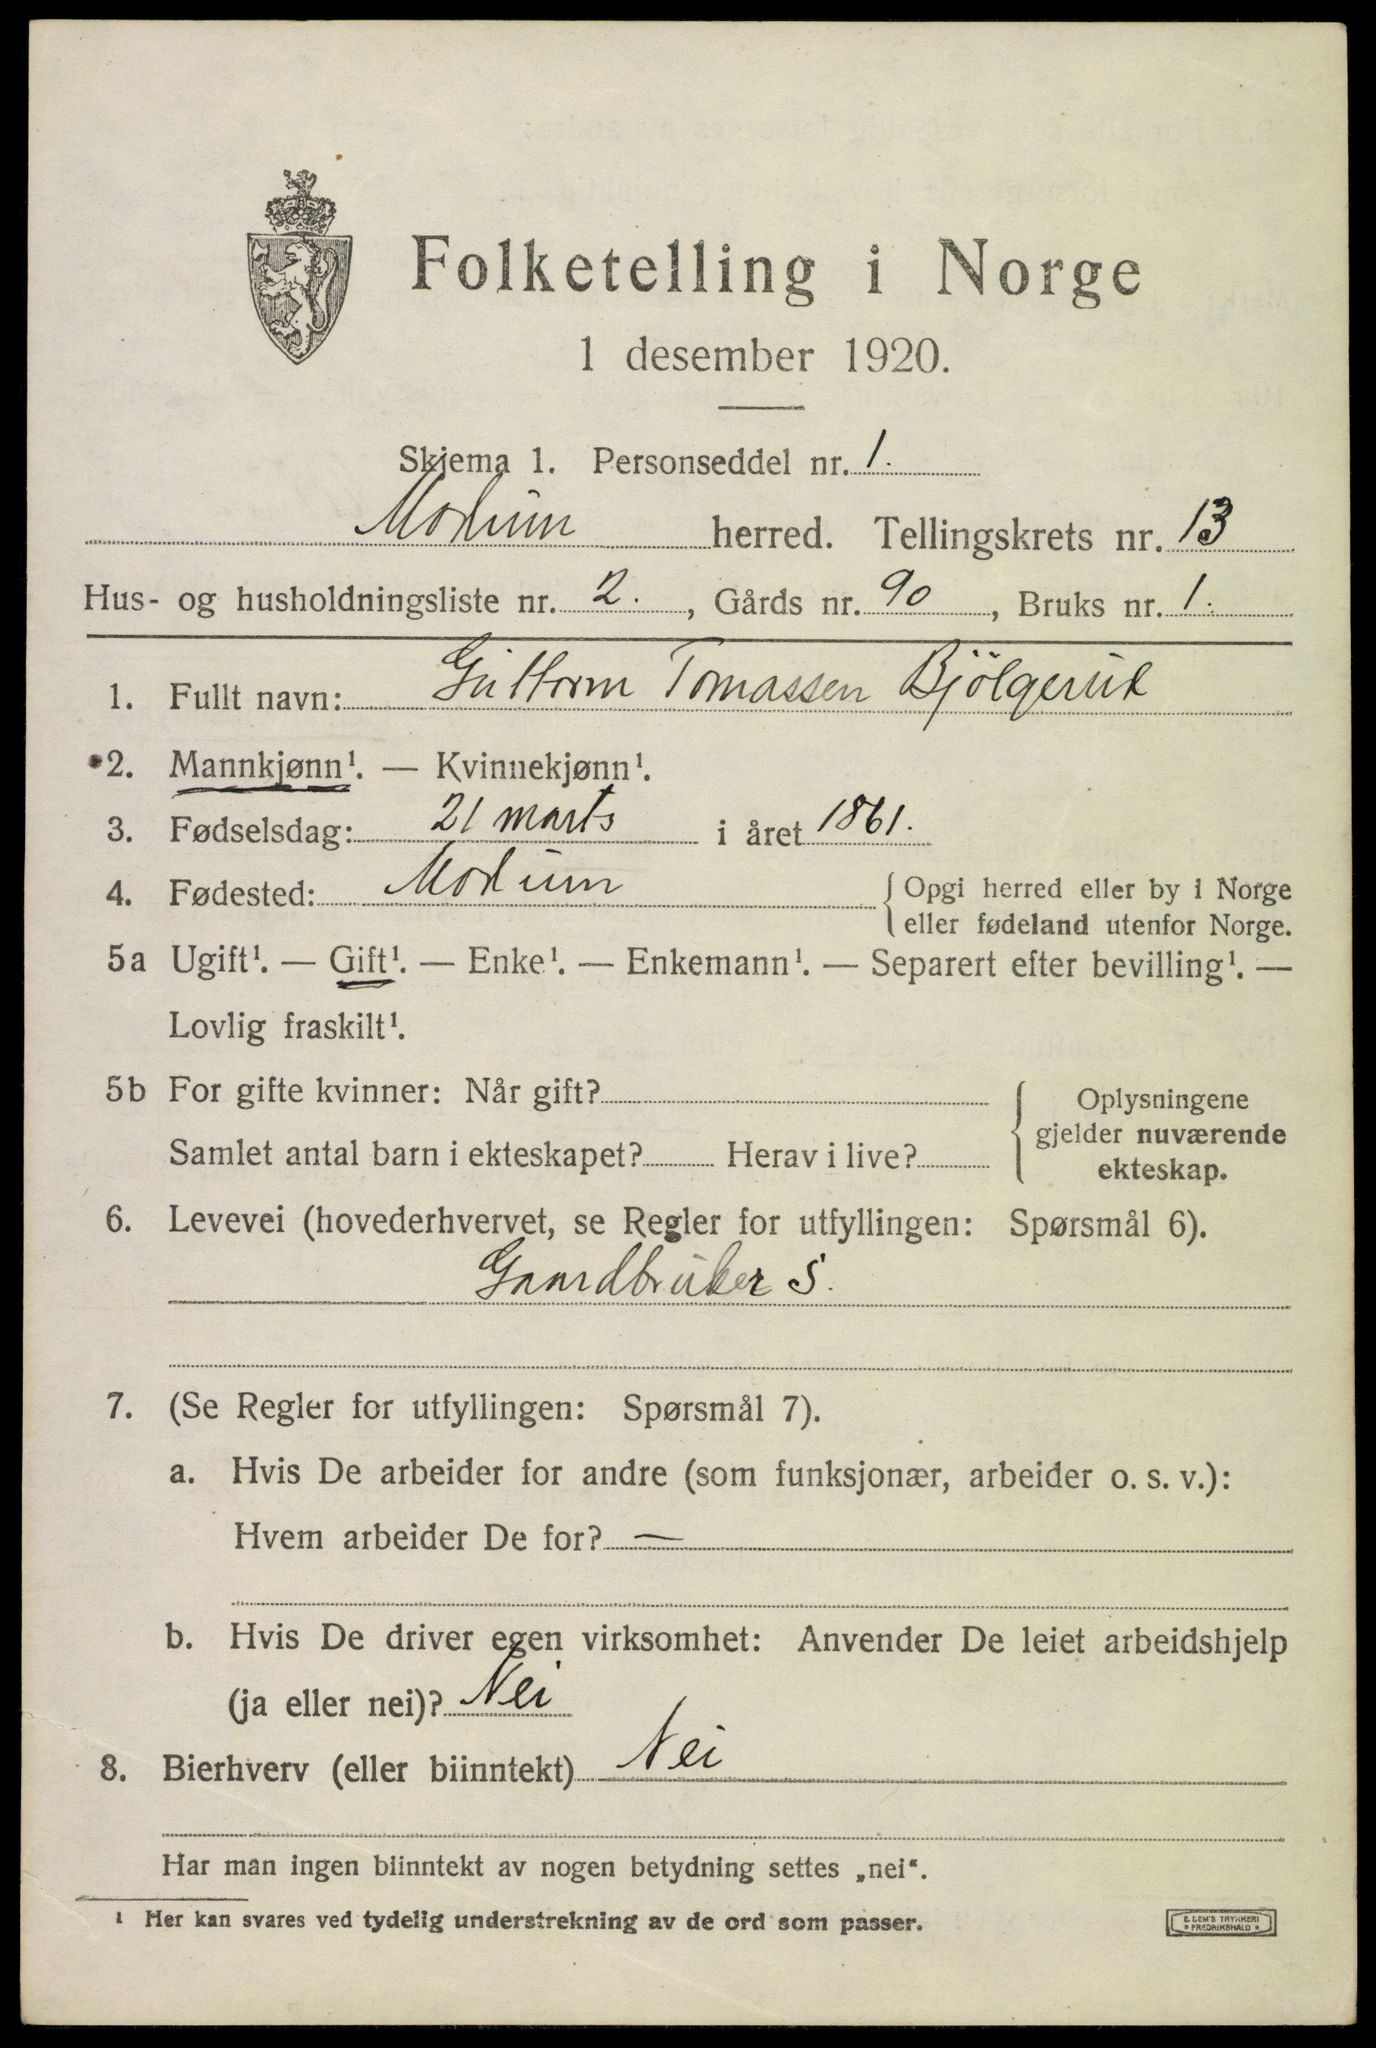 Folketelling i Norge
1 desember 1920.
Skjema 1. Personseddel nr. 1.
Modum herred. Tellingskrets nr. 13
Hus- og husholdningsliste nr. 2., Gårds nr. 90, Bruks nr. 1.
1. Fullt navn: Guttorm Tomassen Bjölgerud
2. Mannkjønn¹. — Kvinnekjønn¹.
3. Fødselsdag: 21 marts i året 1861.
4. Fødested: Modum { Opgi herred eller by i Norge
eller fødeland utenfor Norge.
5a Ugift¹. — Gift¹. — Enke¹. — Enkemann¹. — Separert efter bevilling¹. —
Lovlig fraskilt¹.
5b For gifte kvinner: Når gift?
Samlet antal barn i ekteskapet? Herav i live?
Oplysningene
gjelder nuværende
ekteskap.
6. Levevei (hovederhvervet, se Regler for utfyllingen: Spørsmål 6).
Gaardbruker S.
7. (Se Regler for utfyllingen: Spørsmål 7).
a. Hvis De arbeider for andre (som funksjonær, arbeider o. s. v.):
Hvem arbeider De for? —
b. Hvis De driver egen virksomhet: Anvender De leiet arbeidshjelp
(ja eller nei)? Nei
8. Bierhverv (eller biinntekt) Nei
Har man ingen biinntekt av nogen betydning settes „nei“.
¹ Her kan svares ved tydelig understrekning av de ord som passer.
E. SEM'S TRYKKERI
* FREDRIKSHALD *